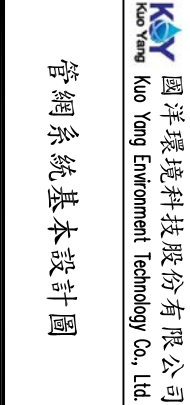 KY
Kuo Yang
國洋環境科技股份有限公司
Kuo Yang Environment Technology Co., Ltd.
管網系統基本設計圖